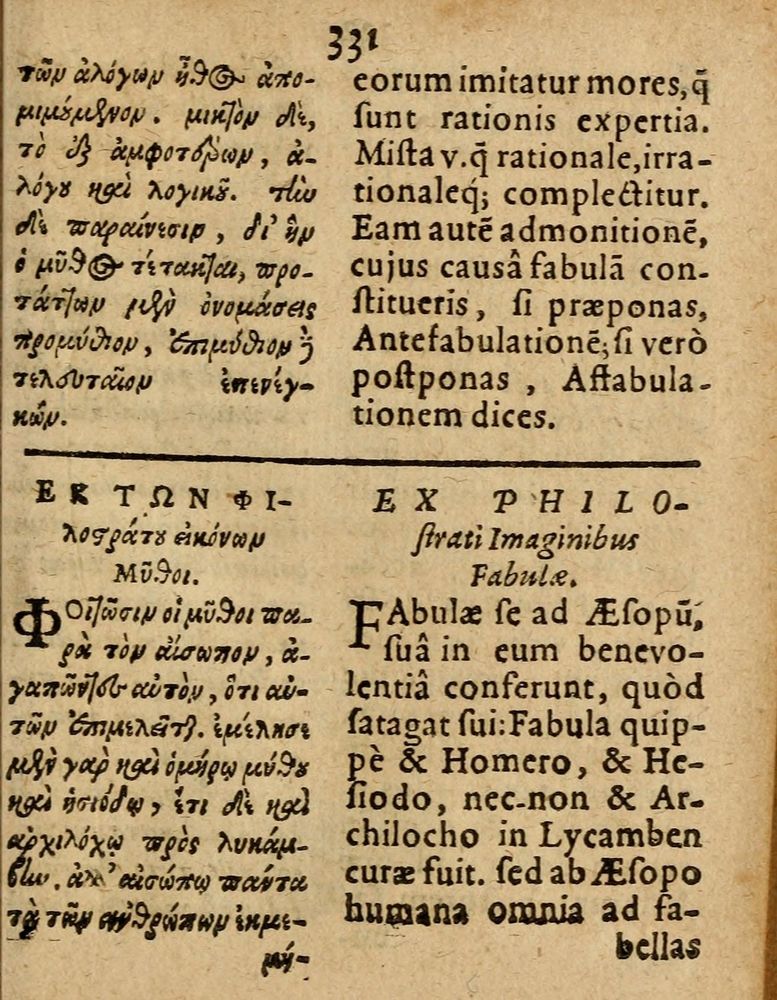 331
τῶν ἀλόγων ἦθος ἀπο-
μιμούμενον. μικτὸν δὲ,
τὸ ἐξ ἀμφοτέρων, ἀ-
λόγου καὶ λογικοῦ. τὴν
δὲ παραίνεσιν, δι' ἣν
ὁ μῦθος τέτακται, προ-
τάττων μὲν ὀνομάσεις
προμύθιον, ἐπιμύθιον δὲ
τελευταῖον ἐπενέγ-
κών.
eorum imitatur mores, q̃
ſunt rationis expertia.
Miſta v. q̃ rationale, irra-
tionaleq́; complectitur.
Eam autē admonitionē,
cujus causâ fabulā con-
ſtitueris, ſi præponas,
Antefabulationē; ſi verò
poſtponas, Affabula-
tionem dices.
ΕΚ ΤΩΝ ΦΙ-
λοστράτου εἰκόνων
Μῦθοι.
ΦΟιτῶσιν οἱ μῦθοι πα-
ρὰ τὸν αἴσωπον, ἀ-
γαπῶντες αὐτὸν, ὅτι αὐ-
τῶν ἐπιμελεῖται. ἐμέλησε
μὲν γὰρ καὶ ὁμήρῳ μύθου
καὶ ἡσιόδῳ, ἔτι δὲ καὶ
ἀρχιλόχῳ πρὸς λυκάμ-
βην. ἀλλ' αἰσώπῳ πάντα
τὰ τῶν ἀνθρώπων ἐκμε-
μύ-
EX PHILO-
ſtrati Imaginibus
Fabulæ.
FAbulæ ſe ad Æſopū,
ſuâ in eum benevo-
lentiâ conferunt, quòd
ſatagat ſui: Fabula quip-
pè & Homero, & He-
ſiodo, nec-non & Ar-
chilocho in Lycamben
curæ fuit. ſed ab Æſopo
humana omnia ad fa-
bellas